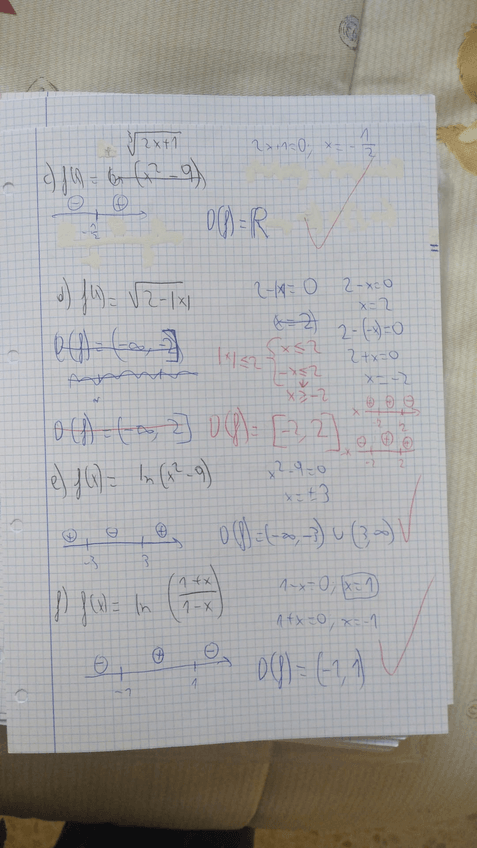 ∛(2x+1)   2x+1=0; x=-1/2
c) f(x) = ln (x²-9)
⊖ ⊕
-1/2   D(f)=ℝ
d) f(x)= √(2-|x|)   2-|x|=0   2-x=0
(x=2)   x=2
D(f)=(-∞,-2]   2-(-x)=0
|x|≤2 { x≤2   2+x=0
-x≤2   x=-2
x≥-2
D(f)=(-∞, 2]   D(f)=[-2,2]   x ⊕ ⊕ ⊖
-2 2
x ⊖ ⊕ ⊕
-2 2
e) f(x)= ln(x²-9)   x²-9=0
x=±3
⊕ ⊖ ⊕
-3 3   D(f)=(-∞,-3) ∪ (3,∞)
f) f(x)= ln ((1+x)/(1-x))   1-x=0, x=1
1+x=0, x=-1
⊖ ⊕ ⊖
-1 1   D(f)=(-1,1)